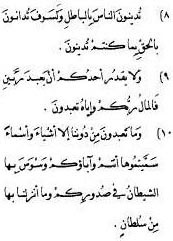 ٨) تُدينونَ الناسَ بالباطلِ ولَسوفَ تُدانونَ
بالحقِّ بما كنتُم تُدينونَ .
٩) ولا يقدرُ أحدُكم أنْ يعبدَ ربَّينِ
فالمالَ ربُّكم وإياهُ تعبدونَ .
١٠) وما تعبدونَ مِن دُونِنا إلا أشياءَ وأسماءً
سمَّيتُموها أنتُم وآباؤُكم ووسوسَ بها
الشيطانُ في صدورِكم وما أنزلنا بها
مِن سُلطانٍ .